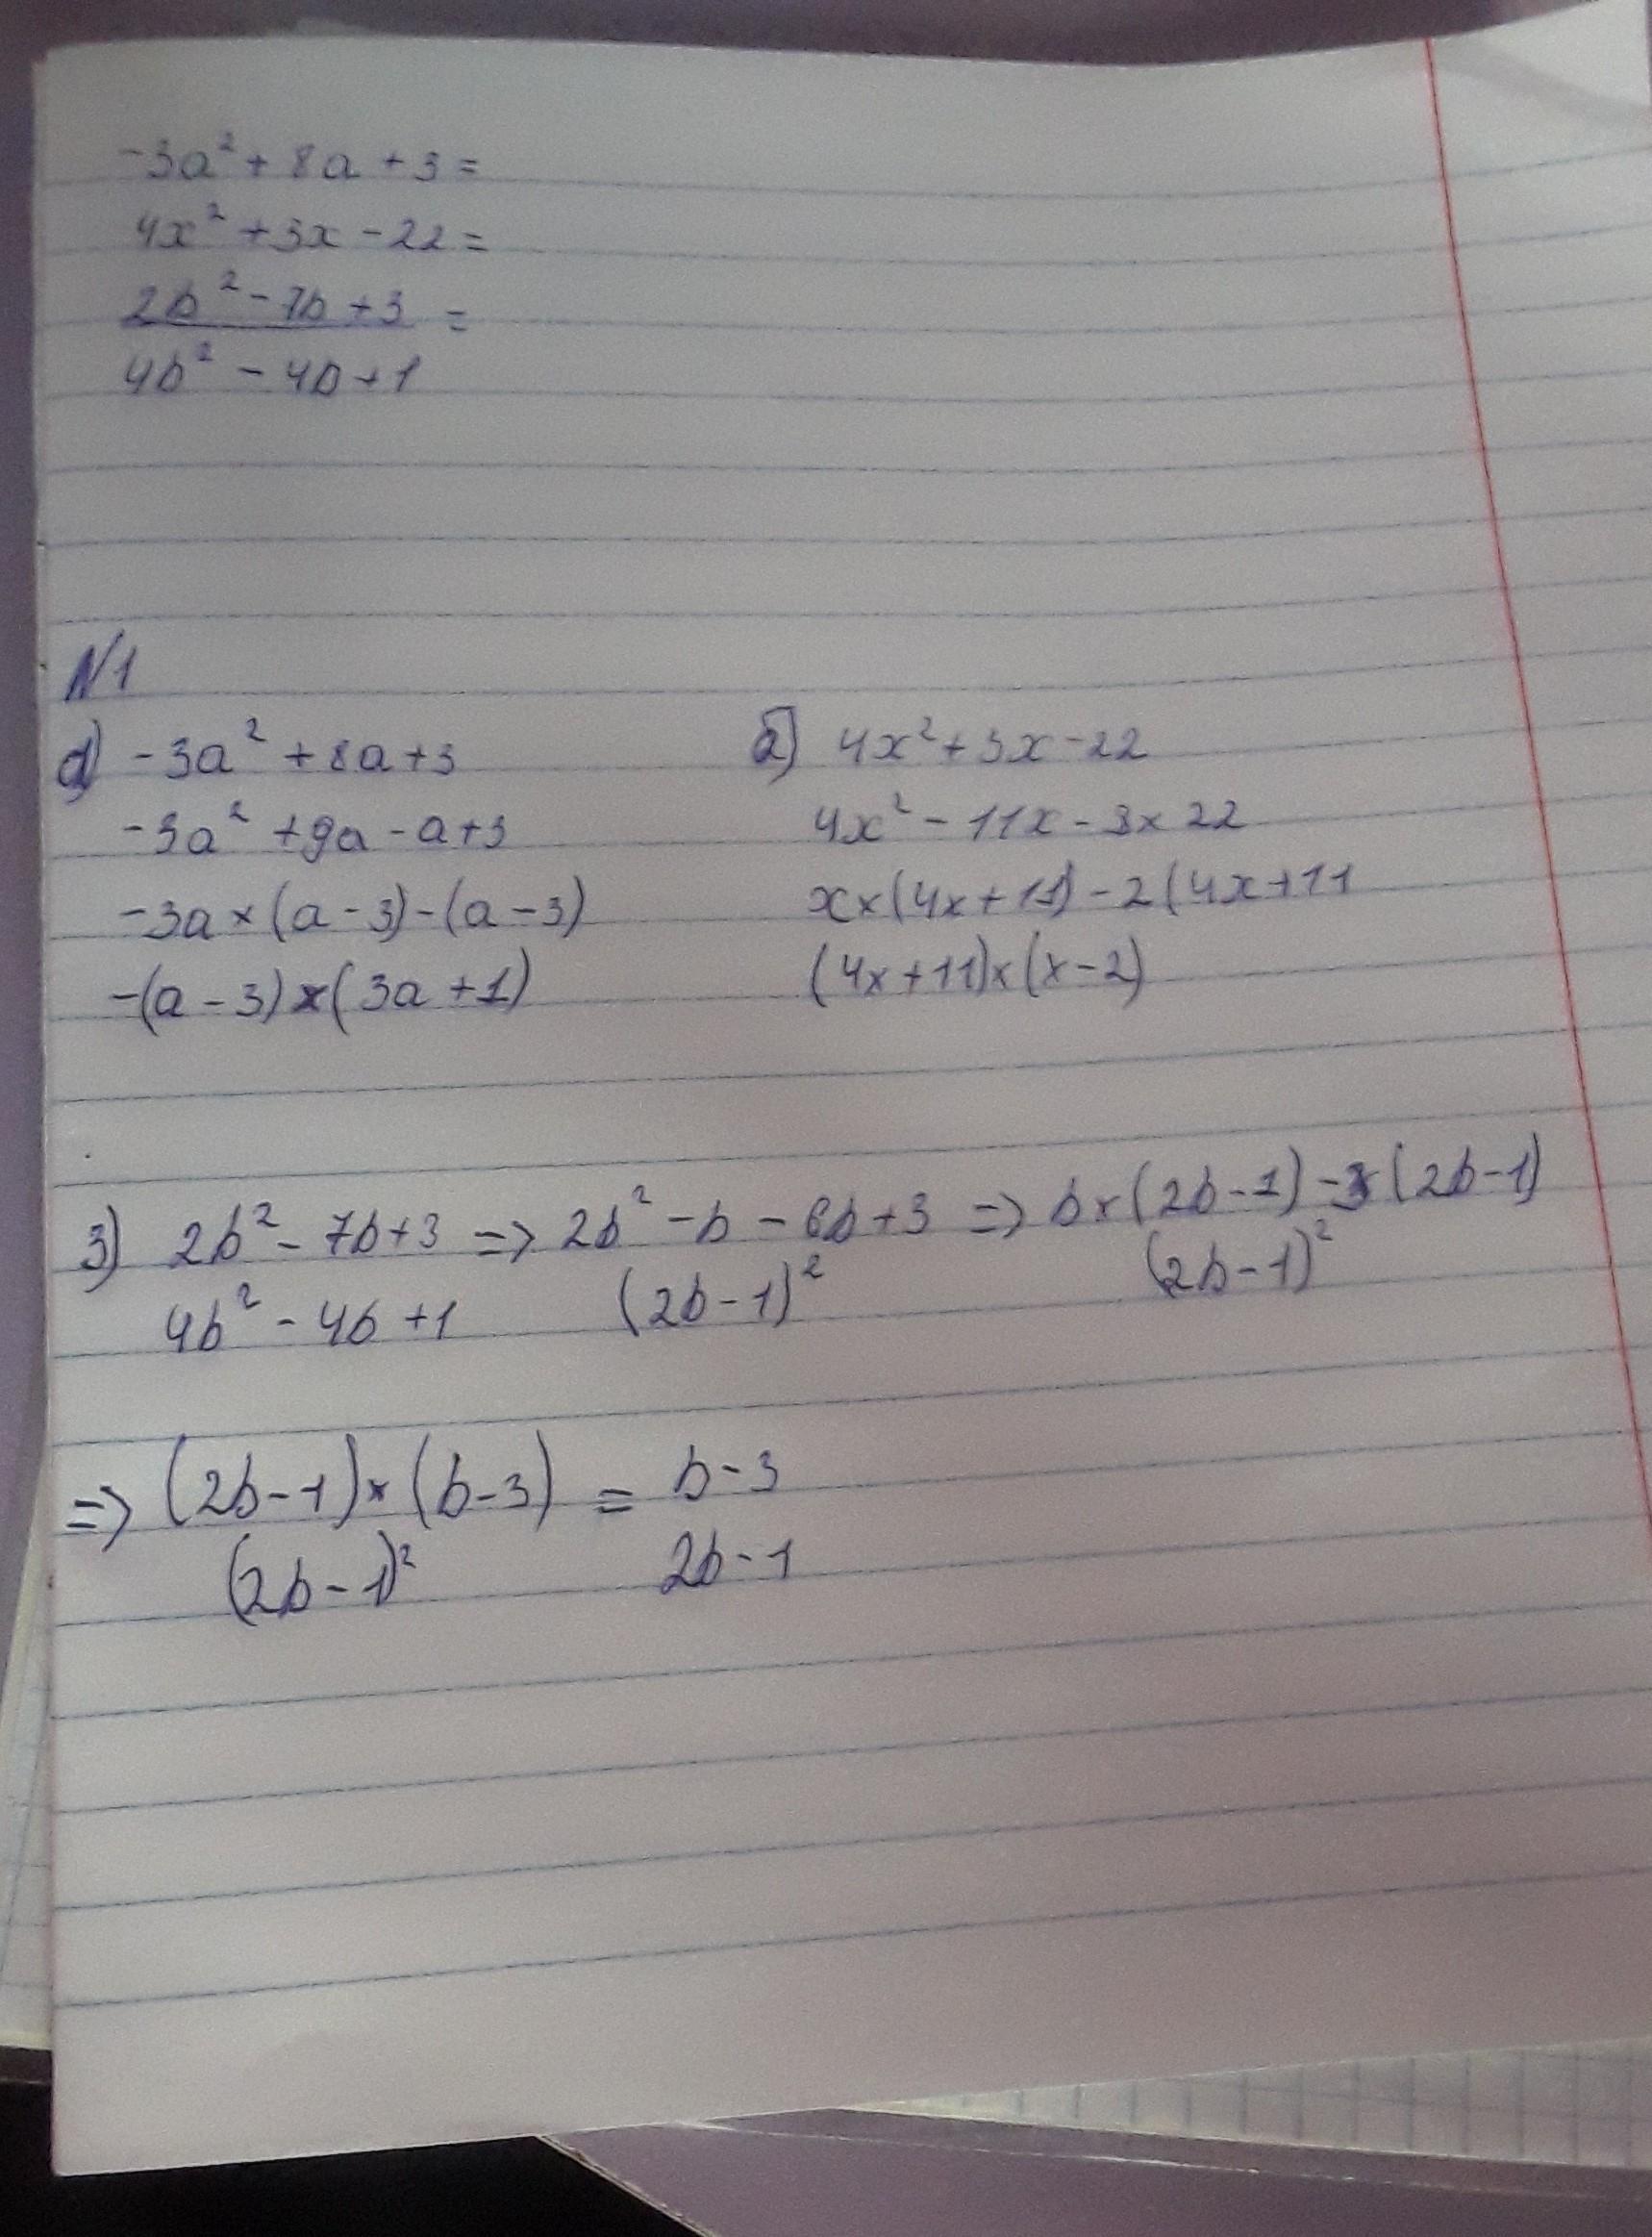 -3a² + 8a + 3 =
4x² + 3x - 22 =
2b² - 7b + 3 =
4b² - 4b + 1
N1
а) -3a² + 8a + 3
-3a² + 9a - a + 3
-3a × (a - 3) - (a - 3)
-(a - 3) × (3a + 1)
б) 4x² + 3x - 22
4x² - 11x - 8x 22
x × (4x + 11) - 2(4x + 11
(4x + 11) × (x - 2)
3) 2b² - 7b + 3 => 2b² - b - 6b + 3 => b × (2b - 1) - 3 (2b - 1)
4b² - 4b + 1 (2b - 1)² (2b - 1)²
=> (2b - 1) × (b - 3) = b - 3
(2b - 1)² 2b - 1